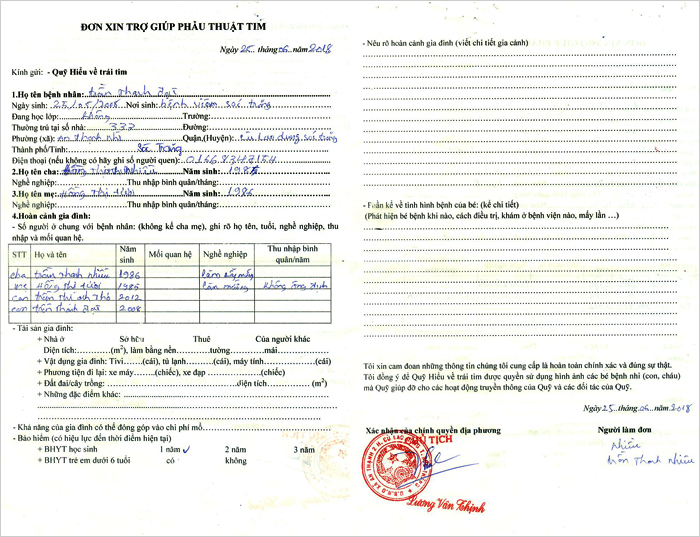 ĐƠN XIN TRỢ GIÚP PHẪU THUẬT TIM
Ngày 25. tháng 06. năm 2018
Kính gửi: - Quỹ Hiểu về trái tim
1.Họ tên bệnh nhân: trần thanh
Ngày sinh: 25/05/2018 Nơi sinh: bệnh viện sóc trăng
Đang học lớp: không Trường:
Thường trú tại số nhà: 332 Đường:
Phường (xã): An thạnh nhì Quận,(Huyện): Cù Lao dung sóc trăng
Thành phố/Tỉnh: Sóc Trăng
Điện thoại (nếu không có hãy ghi số người quen): 01668343154
2.Họ tên cha: Nhiều Năm sinh: 1986
Nghề nghiệp: Thu nhập bình quân/tháng:
3.Họ tên mẹ: Hồng Thị tươi Năm sinh: 1986
Nghề nghiệp: Thu nhập bình quân/tháng:
4.Hoàn cảnh gia đình:
- Số người ở chung với bệnh nhân: (không kể cha mẹ), ghi rõ họ tên, tuổi, nghề nghiệp, thu
nhập và mối quan hệ.
STT Họ và tên Năm sinh Mối quan hệ Nghề nghiệp Thu nhập bình quân/năm
cha trần thanh nhiều 1986 làm
mẹ Hồng thị tươi 1986 làm mướn không ổng định
con trần thị anh thơ 2012
con trần thanh 2008
- Tài sản gia đình:
+ Nhà ở Sở hữu Thuê Của người khác
Diện tích: (m2), làm bằng nền: tường: mái:
+ Vật dụng gia đình: Tivi (cái), tủ lạnh (cái), máy tính (cái)
+ Phương tiện đi lại: xe máy (chiếc), xe đạp (chiếc)
+ Đất đai/cây trồng: diện tích (m2)
+ Những đặc điểm khác:
- Khả năng của gia đình có thể đóng góp vào chi phí mổ
- Bảo hiểm (có hiệu lực đến thời điểm hiện tại)
+ BHYT học sinh 1 năm 2 năm 3 năm
+ BHYT trẻ em dưới 6 tuổi có không
- Nêu rõ hoàn cảnh gia đình (viết chi tiết gia cảnh)
kể về tình hình bệnh của bé: (kể chi tiết)
(Phát hiện bé bệnh khi nào, cách điều trị, khám ở bệnh viện nào, mấy lần …)
Tôi xin cam đoan những thông tin chúng tôi cung cấp là hoàn toàn chính xác và đúng sự thật.
Tôi đồng ý để Quỹ Hiểu về trái tim được quyền sử dụng hình ảnh các bé bệnh nhi (con, cháu)
mà Quỹ giúp đỡ cho các hoạt động truyền thông của Quỹ và các đối tác của Quỹ.
Ngày 25. tháng 06. năm 2018
Xác nhận của chính quyền địa phương Người làm đơn
CHỦ TỊCH
nhiều
trần Thanh nhiều
Lương Văn Thịnh